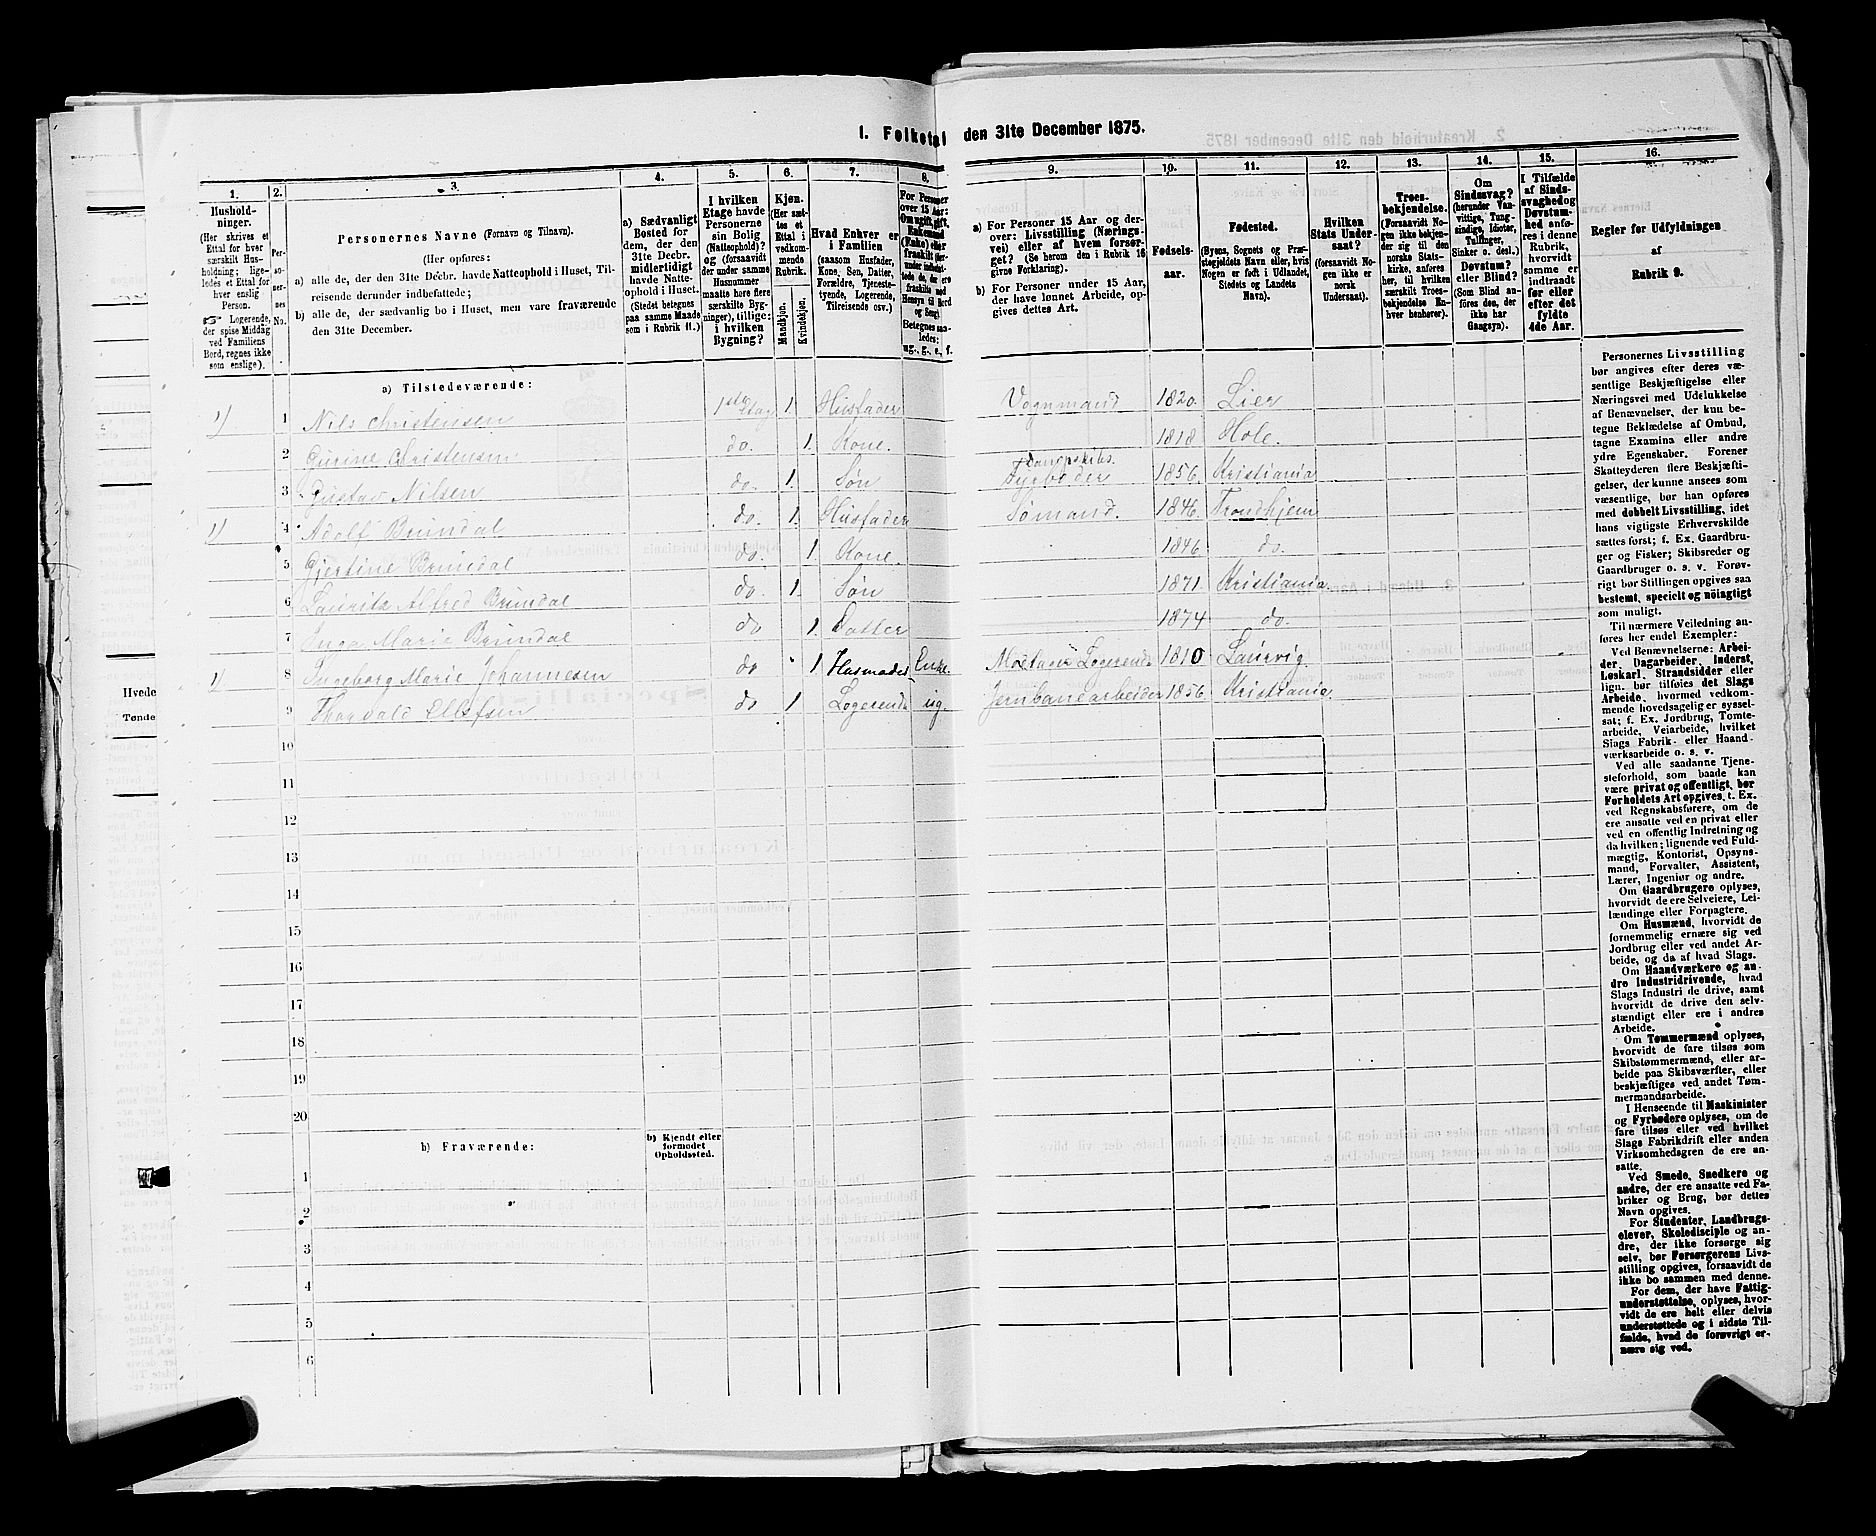 1. Folketal den 31te December 1875.
1. 2. 3. 4. 5. 6. 7. 8. 9. 10. 11. 12. 13. 14. 15. 16.
Hushold-
ninger.
(Her skrives et
Ettal for hver
særskilt Hus-
holdning; lige-
ledes et Ettal for
hver enslig
Person.
☞ Logerende,
der spise Middag
ved Familiens
Bord, regnes ikke
som enslige).
Per-
so-
ner-
nes
No.
Personernes Navne (Fornavn og Tilnavn).
(Her opføres:
a) alle de, der den 31te Decbr. havde Natteophold i Huset, Til-
reisende derunder indbefattede;
b) alle de, der sædvanlig bo i Huset, men vare fraværende
den 31te December.
a) Sædvanligt
Bosted for
dem, der den
31te Decbr.
midlertidigt
havde Natte-
ophold i Huset.
(Stedet betegnes
paa samme Maade
som i Rubrik 11.)
I hvilken
Etage havde
Personerne
sin Bolig
(Natteophold)?
og (forsaavidt
der under samme
Husnummer
maatte høre flere
særskilte Byg-
ninger), tillige:
i hvilken
Bygning?
Kjøn.
(Her sæt-
tes et
Ettal i
vedkom-
mende
Rubrik.
Mandkjøn.
Kvindekjøn.
Hvad Enhver er
i Familien
(saasom Husfader,
Kone, Søn, Datter,
Forældre, Tjeneste-
tyende, Logerende,
Tilreisende osv.)
For Personer
over 15 Aar:
Betegnes saa-
ledes:
ug., g., e., f.
a) For Personer 15 Aar og der-
over: Livsstilling (Nærings-
vei) eller af hvem forsør-
get? (Se herom den i Rubrik 16
givne Forklaring).
b) For Personer under 15 Aar,
der have lønnet Arbeide, op-
gives dettes Art.
Fødsels-
aar.
Fødested.
(Byens, Sognets og Præ-
stegjeldets Navn eller, hvis
Nogen er født i Udlandet,
Stedets og Landets
Navn).
Hvilken
Stats Under-
saat?
(forsaavidt No-
gen ikke er
norsk
Undersaat).
Troes-
bekjendelse.
(Forsaavidt No-
gen ikke bekjen-
der sig til den
norske Stats-
kirke, anføres
her, til hvilket
særskilt Troes-
bekjendelse En-
hver henhører).
Om
Sindssvag?
(herunder Van-
vittige, Tung-
sindige, Idioter,
Tullinger,
Sinker o. desl.)
Døvstum?
eller Blind?
(Som Blind an-
føres den, der
ikke har
Gangsyn).
I Tilfælde
af Sinds-
svaghed og
Døvstum-
hed anfø-
res i denne
Rubrik,
hvorvidt
samme er
indtraadt
før eller
efter det
fyldte
4de Aar.
Regler for Udfyldningen
af
Rubrik 9.
a) Tilstedeværende:
1) 1 Nils Christensen 1ste Etag 1. Husfader Vognmand 1820. Lier
2 Gurine Christensen do. 1. Kone. 1818 Hole.
3 Gustav Nilsen do. 1. Søn Dampskibs. Fyrbøder 1856 Kristiania
1) 4 Adolf Brundal do. 1. Husfader Sømand. 1846. Trondhjem
5 Gjertine Brundal do. 1. Kone. 1846. do.
6 Lauritz Alfred Brundal do. 1. Søn 1871. Kristiania.
7 Inga Marie Brundal do 1. Datter 1874 do.
1) 8 Ingeborg Marie Johannesen do 1 Husmoder Enke. Modtager Logerende 1810 Laurvig.
9 Thorvald Ellefsen do 1 Logerende ug. Jernbanearbeider 1856. Kristiania
10
11
12
13
14
15
16
17
18
19
20
b) Fraværende:
b) Kjendt eller
formodet
Opholdssted.
1
2
3
4
5
6
Personernes Livsstilling
bør angives efter deres væ-
sentlige Beskjæftigelse eller
Næringsvei med Udelukkelse
af Benævnelser, der kun be-
tegne Beklædelse af Ombud,
tagne Examina eller andre
ydre Egenskaber. Forener
Skatteyderen flere Beskjæfti-
gelser, der kunne ansees som
væsentlige, bør han opføres
med dobbelt Livsstilling, idet
hans vigtigste Erhvervskilde
sættes først; f. Ex. Gaardbru-
ger og Fisker; Skibsreder og
Gaardbruger o. s. v. Forøv-
rigt bør Stillingen opgives saa
bestemt, specielt og nöiagtigt
som muligt.
Til nærmere Veiledning an-
føres her endel Exempler:
Ved Benævnelserne: Arbei-
der, Dagarbeider, Inderst,
Løskarl, Strandsidder eller
lign. bør tilføies det Slags
Arbeide, hvormed vedkom-
mende hovedsagelig er syssel-
sat; f. Ex. Jordbrug, Tomte-
arbeide, Veiarbeide, hvilket
Slags Fabrik- eller Haand-
værksarbeide o. s. v.
Ved alle saadanne Tjene-
steforhold, som baade kan
være privat og offentligt, bør
Forholdets Art opgives, t. Ex.
ved Regnskabsførere, om de
ere ansatte ved en privat eller
ved en offentlig Indretning og
da hvilken; lignende ved Fuld-
mægtig, Kontorist, Opsyns-
mand, Forvalter, Assistent,
Lærer, Ingeniør og andre.
Om Gaardbrugere oplyses,
hvorvidt de ere Selveiere, Lei-
lændinge eller Forpagtere.
Om Husmænd, hvorvidt de
fornemmelig ernære sig ved
Jordbrug eller ved andet Ar-
beide, og da af hvad Slags.
Om Haandværkere og an-
dre Industridrivende, hvad
Slags Industri de drive, samt
hvorvidt de drive den selv-
stændigt eller ere i andres
Arbeide.
Om Tømmermænd oplyses,
hvorvidt de fare tilsøs som
Skibstømmermænd, eller ar-
beide paa Skibsværfter, eller
beskjæftiges ved andet Tøm-
mermandsarbeide.
I Henseende til Maskinister
og Fyrbødere oplyses, om de
fare tilsøs eller ved hvilket
Slags Fabrikdrift eller anden
Virksomhedsgren de ere an-
satte.
Ved Smede, Snedkere og
andre, der ere ansatte ved Fa-
briker og Brug, bør dettes
Navn opgives.
For Studenter, Landbrugs-
elever, Skoledisciple og an-
dre, der ikke forsørge sig
selv, bør Forsørgerens Livs-
stilling opgives, forsaavidt de
ikke bo sammen med denne.
For dem, der have Fattig-
understøttelse, oplyses, hvor-
vidt de ere helt eller delvis
understøttede og i sidste Til-
fælde, hvad de forøvrigt er-
nære sig ved.
Hvede
Tønde